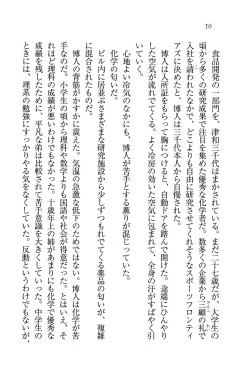 10
食品開発の一部門を、津和三千代はまかされている。まだ二十七歳だが、大学生の
頃から多くの研究成果で注目を集めてきた優秀な化学者だ。数多くの企業から三顧の礼で
入社を請われたなかで、どこよりも自由に研究させてくれそうなスポーツフロンティ
アズに決めたと、博人は三千代本人から自慢された。
博人は入所証をもらって胸につけると、自動ドアを踏んで開けた。途端にひんやり
した空気が流れてくる。よく冷房の効いた空気に包まれて、全身の汗がすばやく引
いていく。
心地よい冷気のなかにも、博人が苦手とする薫りが混じっていた。
化学の匂いだ。
ビル内に居並ぶさまざまな研究施設から少しずつもれでてくる薬品の匂いが、複雑
に混合されたものだ。
博人の背筋がかすかに震えた。気温の急激な低下のためではない。博人は化学が苦
手なのだ。小学生の頃から理科や数学よりも国語や社会が得意だった。とはいえ、そ
れほど理科の成績が悪いわけでもなかった。十歳年上の姉があまりにも化学で優秀な
成績を残したために、平凡な弟は比較されて苦手意識を大きくしていった。中学生の
ときには、理系の勉強にすっかりやる気をなくしていた。反動というわけでもないが、